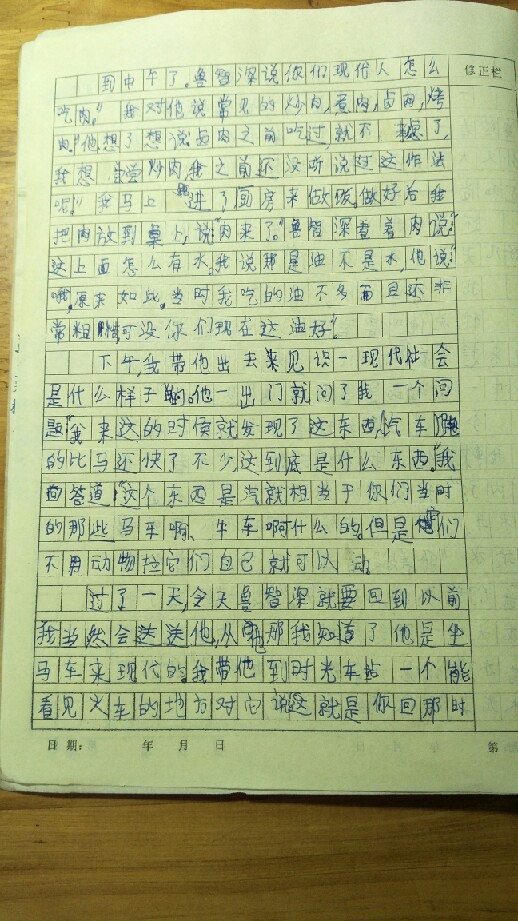 修正栏
到中午了。鲁智深说你们现代人怎么
吃肉。”我对他说常见的炒肉,煮肉,卤肉,烤
肉。”他想了想说卤肉之前吃过,就不 了,
我想 尝尝炒肉我之前还没听说过这作法
呢。”我马上 进了厨房来做饭,做好后我
把肉放到桌上,说“肉来了。”鲁智深看着肉说:“
这上面怎么有水,我说那是油不是水,他说:“
哦,原来如此,当时我吃的油不多而且还非
常粗糙可没你们现在这油好”。
下午,我带他出去来见识一现代社会
是什么样子的他一出门就问了我一个问
题“我来这的时候就发现了这东西,汽车跑
的比马还快了不少,这到底是什么东西,”我
回答道“这个东西是汽就相当于你们当时
的那些马车啊、牛车啊什么的,但是 们
不用动物拉它们自己就可以动。
过了一天,今天鲁智深就要回到以前
我当然会送送他,从 那我知道了他是坐
马车来现代的,我带他到时光车站一个能
看见火车的地方对它说这就是你回那时
日期: 年 月 日 第